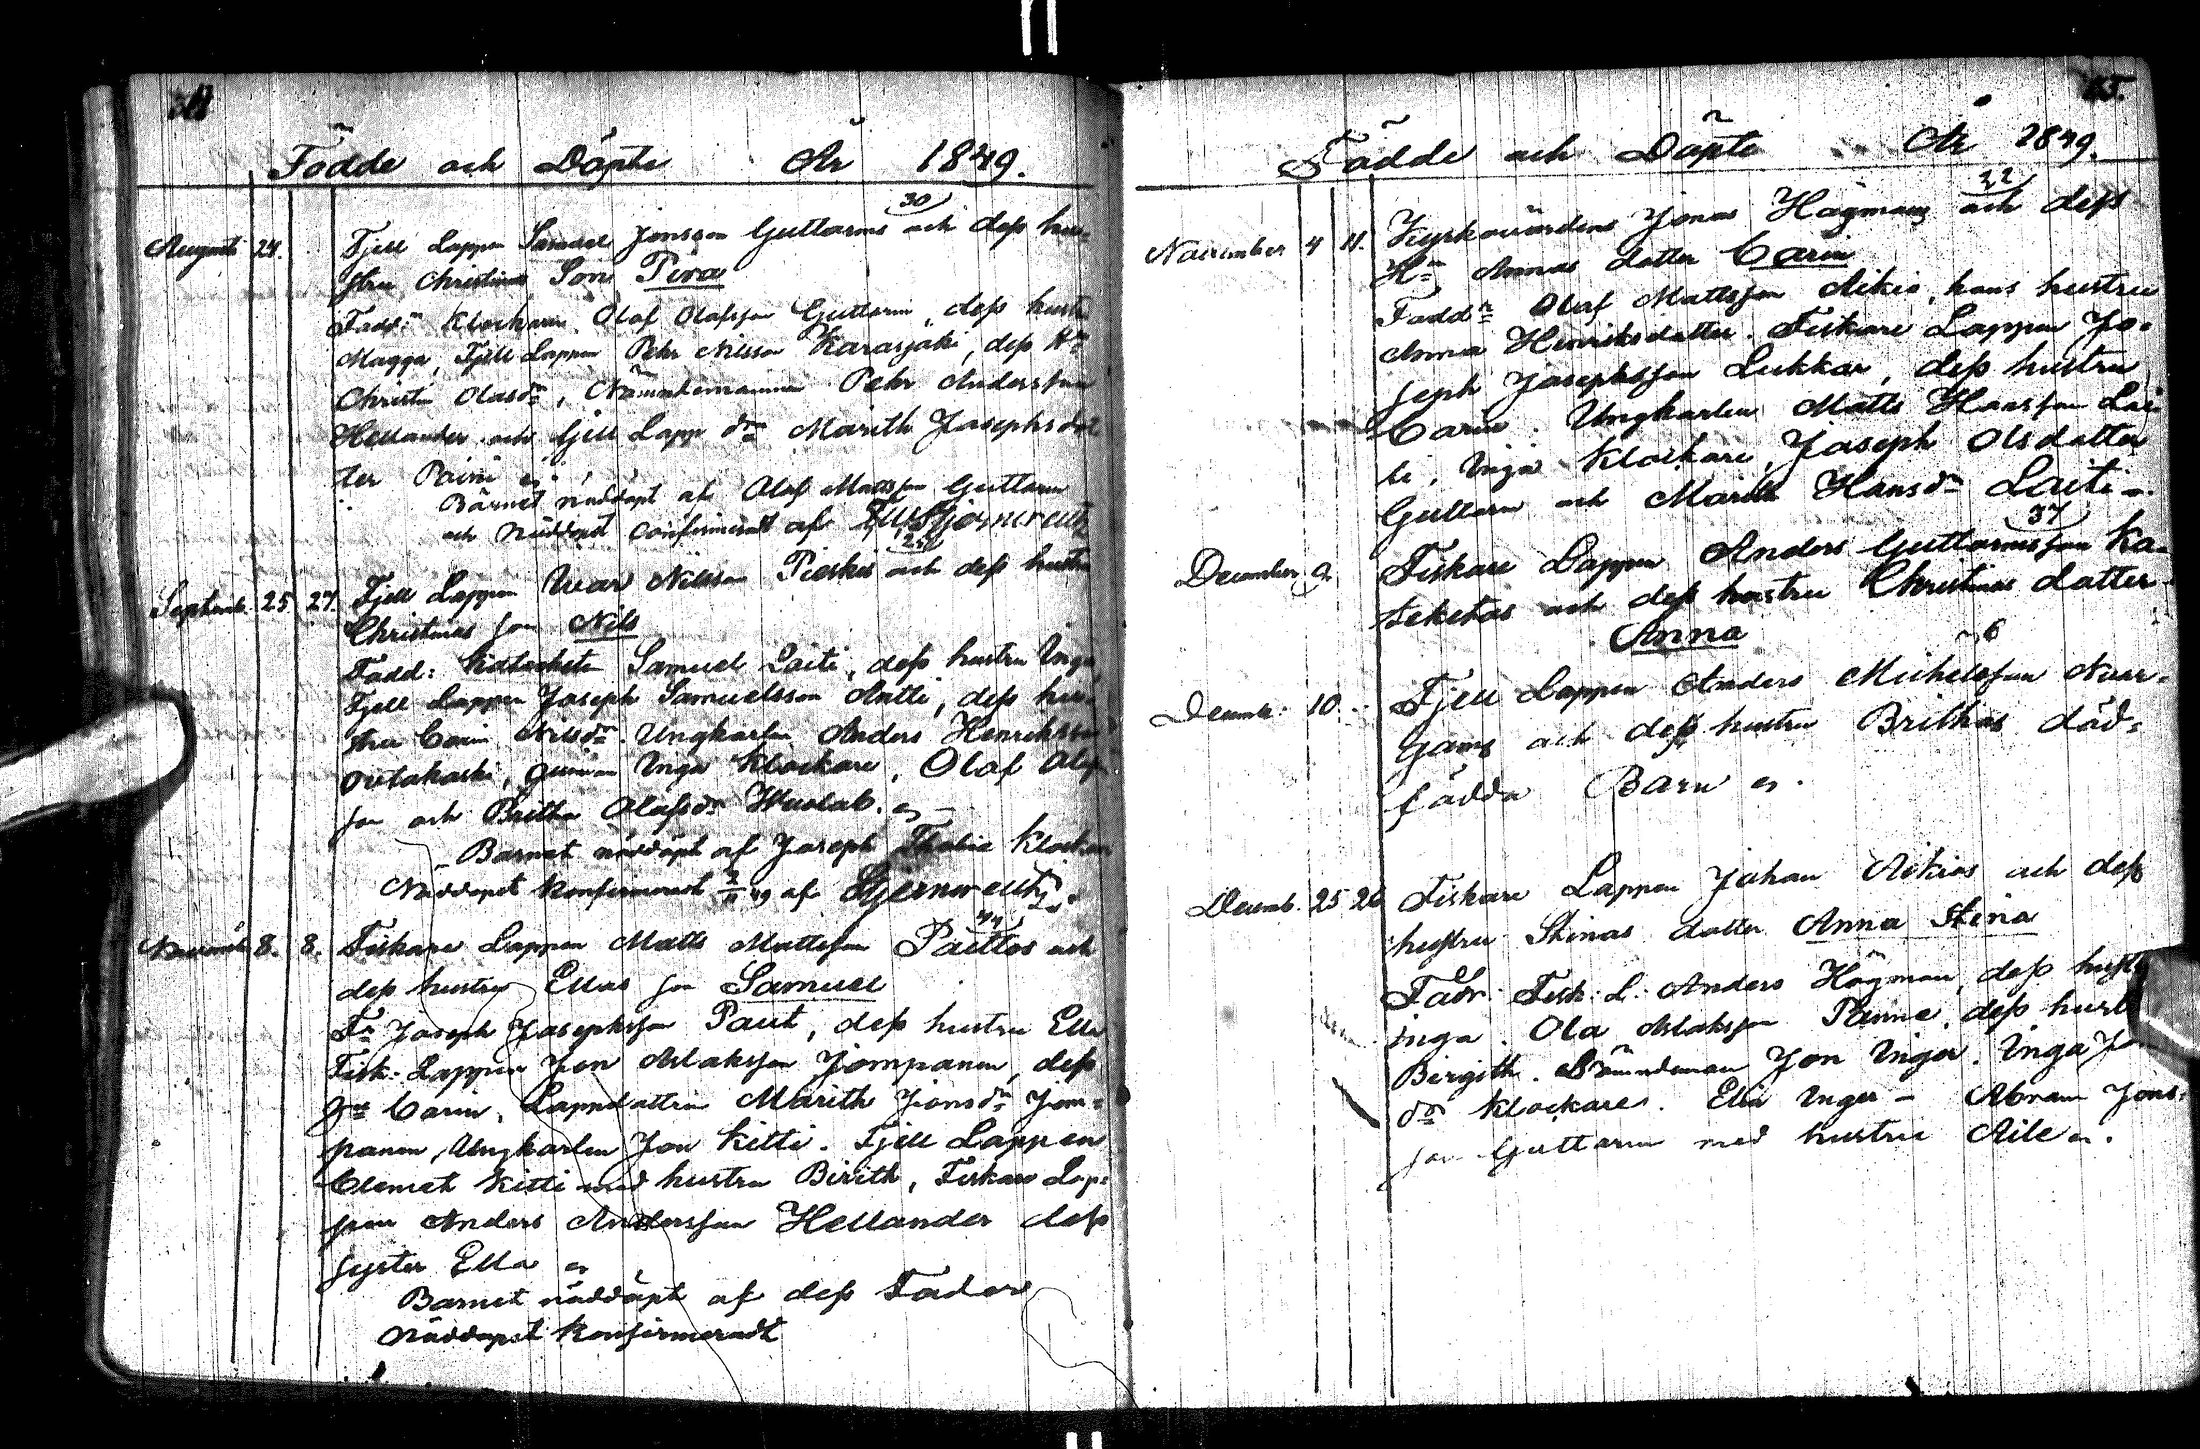 Födde och Döpte År 1849.
30
Augusti 24. Fjell Lappen Samuel Jonsson Guttorms och dess hu-
stru Christinas Son Pira
Fadd: Klockaren Olof Olofsson Guttorm, dess hustru
Magga, Fjell Lappen Pehr Nilsson Karasjoki, dess H:
Christin Olasdr, Nämndemannen Pehr Andersson
Hellander och fjell Lapp dn Marith Josephsdot
ter
Barnet nöddöpt af Olof Mattsson Guttorm
och Nöddopet Confirmeradt af
Septemb. 25 27 Fjell Lappen Ivar Nilsson Pieskis och dess hustru
Christinas son Nils
Fadd: Samuel Laiti, dess hustru Inga
Fjell Lappen Joseph Samuelsson Antti, dess hu-
stru Carin Nilsdr. Ungkarlen Anders Henriksson
Inga Klockare, Olof Olofs
son och Britha Olafsdr
Barnet nöddöpt af Joseph Klockare
Nöddopet Konfirmeradt af Stjerncreutz
44
8. 8. Fiskare Lappen Matts Mattsson Paittos och
dess hustru Ellas son Samuel
Fr Joseph Josephsson Paut, dess hustru Ella
Fisk. Lappen Jon Aslaksson Jompanen, dess
Carin, Lappdottren Marith Jonsdr Jom-
panen, Ungkarlen Jon Kitti. Fjell Lappen
Clemet Kitti med hustru Birith, Fiskare Lap-
pen Anders Andersson Hellander dess
syster Ella
Barnet nöddöpt af dess Fader
Nöddopet Konfirmeradt
15.
Födde och Döpte År 1849.
22
November 4 11. Kyrkovärdens Jonas Högmans och dess
Hu Annas dotter Carin
Faddr Olof Mattsson Aikio, hans hustru
Anna Henriksdotter. Fiskare Lappen Jo-
seph Josephsson Lukkar, dess hustru
Carin. Ungkarlen Matts Hansson Lai
ti, Inga Klockare, Joseph Olsdotter
Guttorm och Marith Hansdr Laiti
37
December 9. Fiskare Lappen Anders Guttormsson Ka-
teketas och dess hustru Christinas dotter
Anna
6
Decemb: 10. Fjell Lappen Anders Michelsson Nuor-
gams och dess hustru Brithas död-
födda Barn
Decemb. 25 26 Fiskare Lappen Johan Aikios och dess
hustru Stinas dotter Anna Stina
Fadr. Fisk. L. Anders Högman, dess hustru
Inga. Ola Aslaksson dess hustr
Birgith. Nämndeman Jon Inger. Inga Jo
dr Klockare. Elia Inger Abram Jons-
son Guttorm med hustru Aile